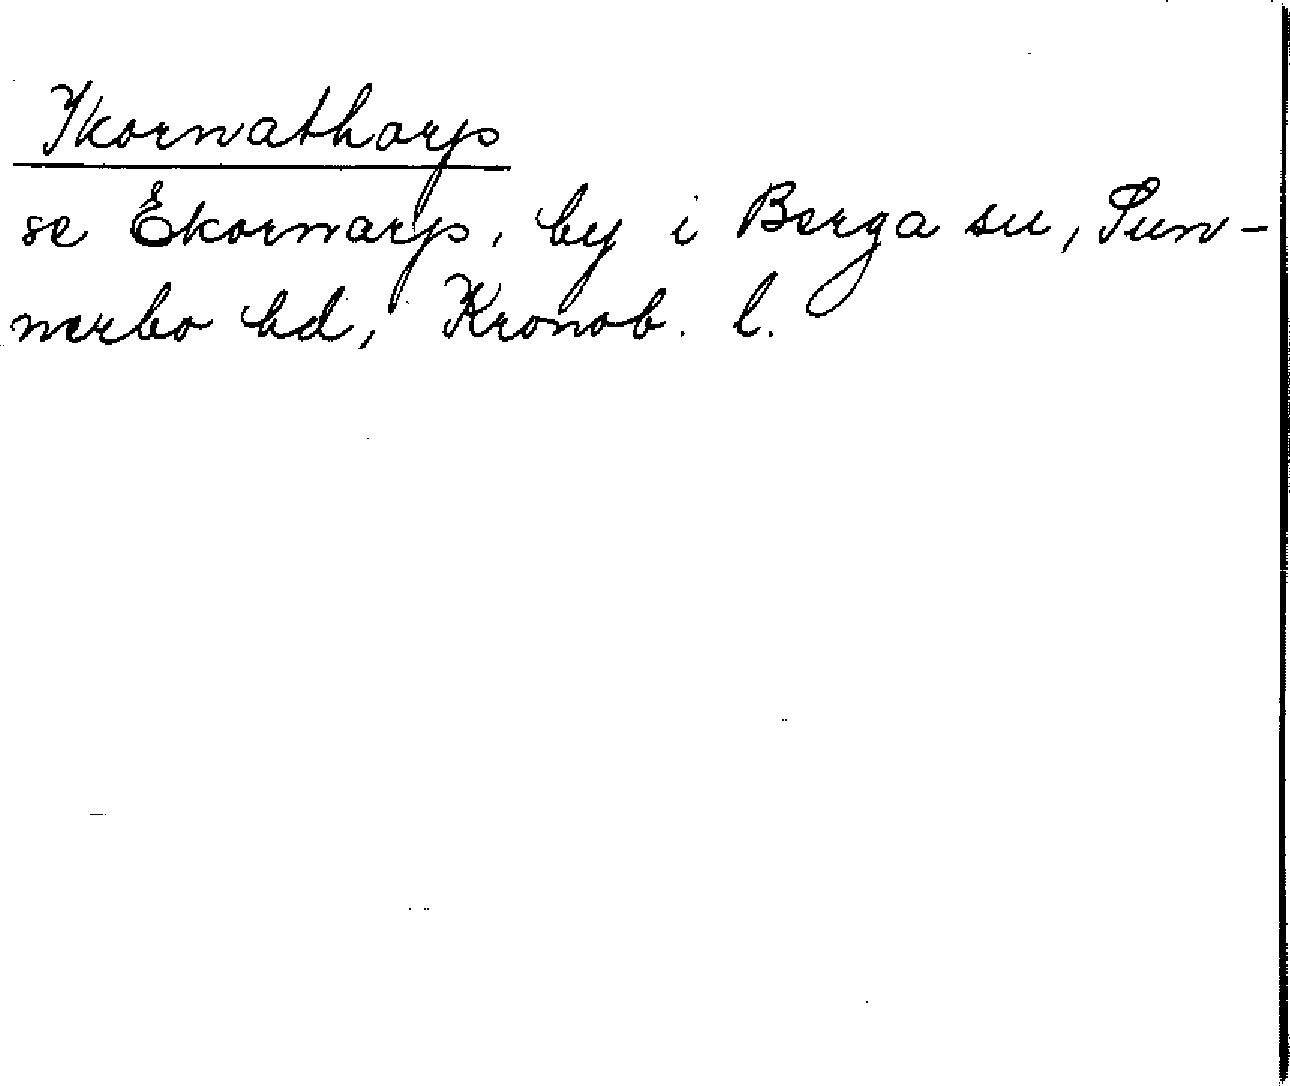 Ikornatharp
se Ekornarp, by i Berga sn, Sun-
nerbo hd, Kronob. l.